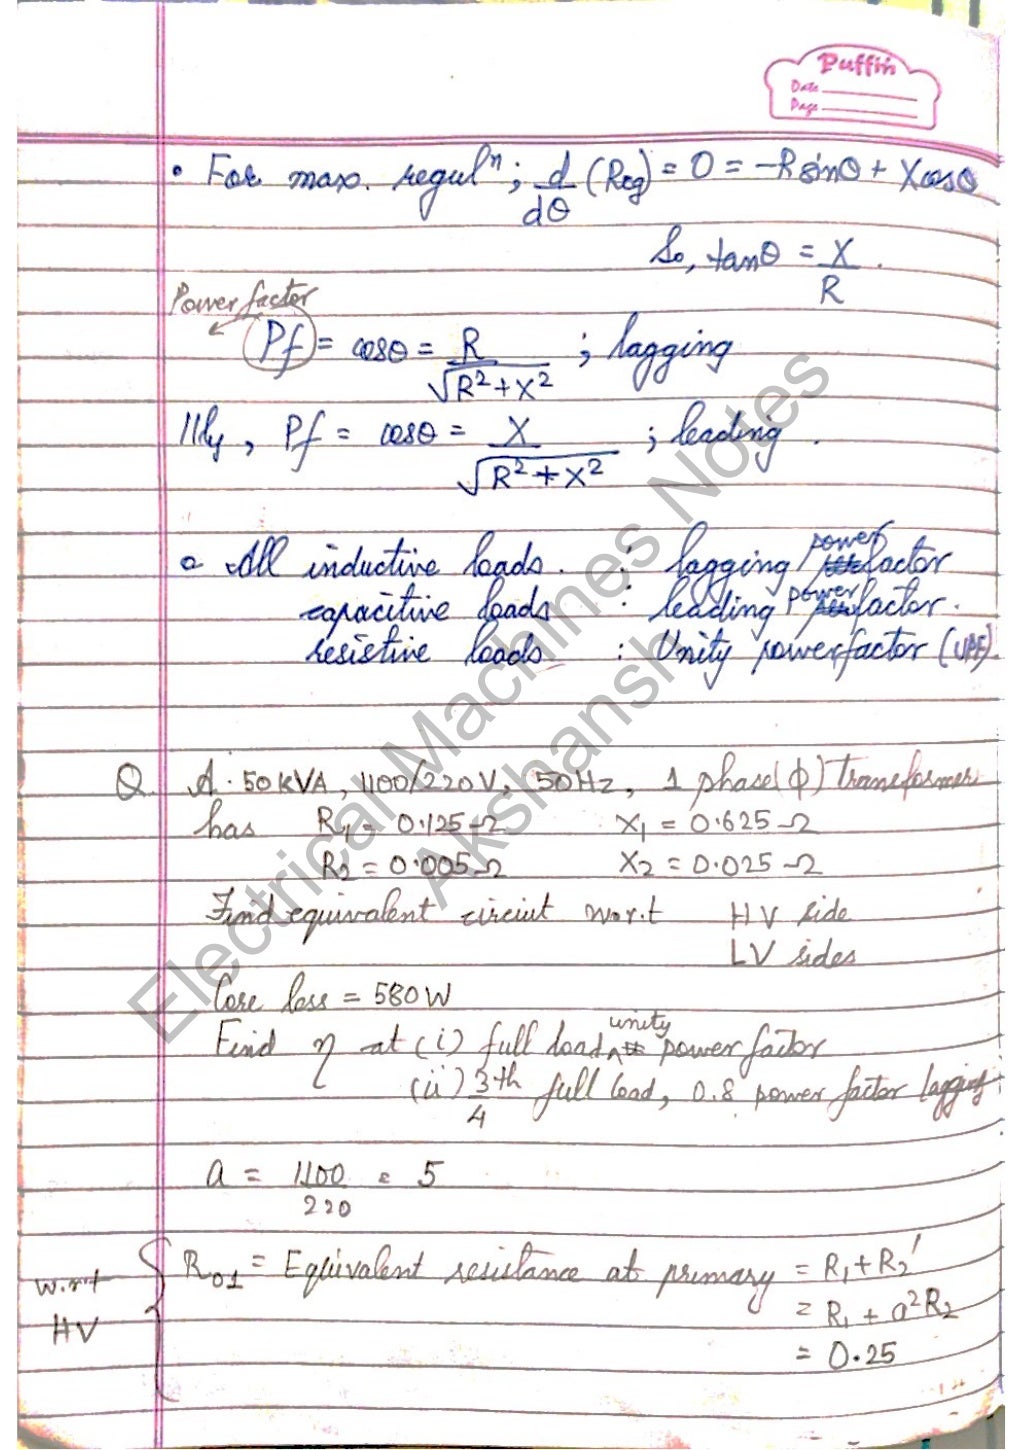 Puffin
Date
Page
• For max. regulⁿ; d/dθ (Reg) = 0 = -R sinθ + X cosθ
So, tanθ = X/R .
Power factor
Pf = cosθ = R/√R²+X² ; lagging
llly, Pf = cosθ = X/√R²+X² ; leading .
o All inductive loads. : lagging power factor
capacitive loads : leading power factor.
resistive loads : Unity powerfactor (UPF).
Q. A. 50 KVA, 1100/220V, 50Hz, 1 phase(ϕ) transformer
has R1 = 0.125Ω X1 = 0.625Ω
R2 = 0.005Ω X2 = 0.025Ω
Find equivalent circiut w.r.t HV side
LV sides
Core loss = 580W
Find η at (i) full load, unity power factor
(ii) 3/4 th full load, 0.8 power factor lagging
a = 1100/220 = 5
w.r.t
HV
R01 = Equivalent resistance at primary = R1 + R2'
= R1 + a²R2
= 0.25
Electrical Machines Notes
Akshansh